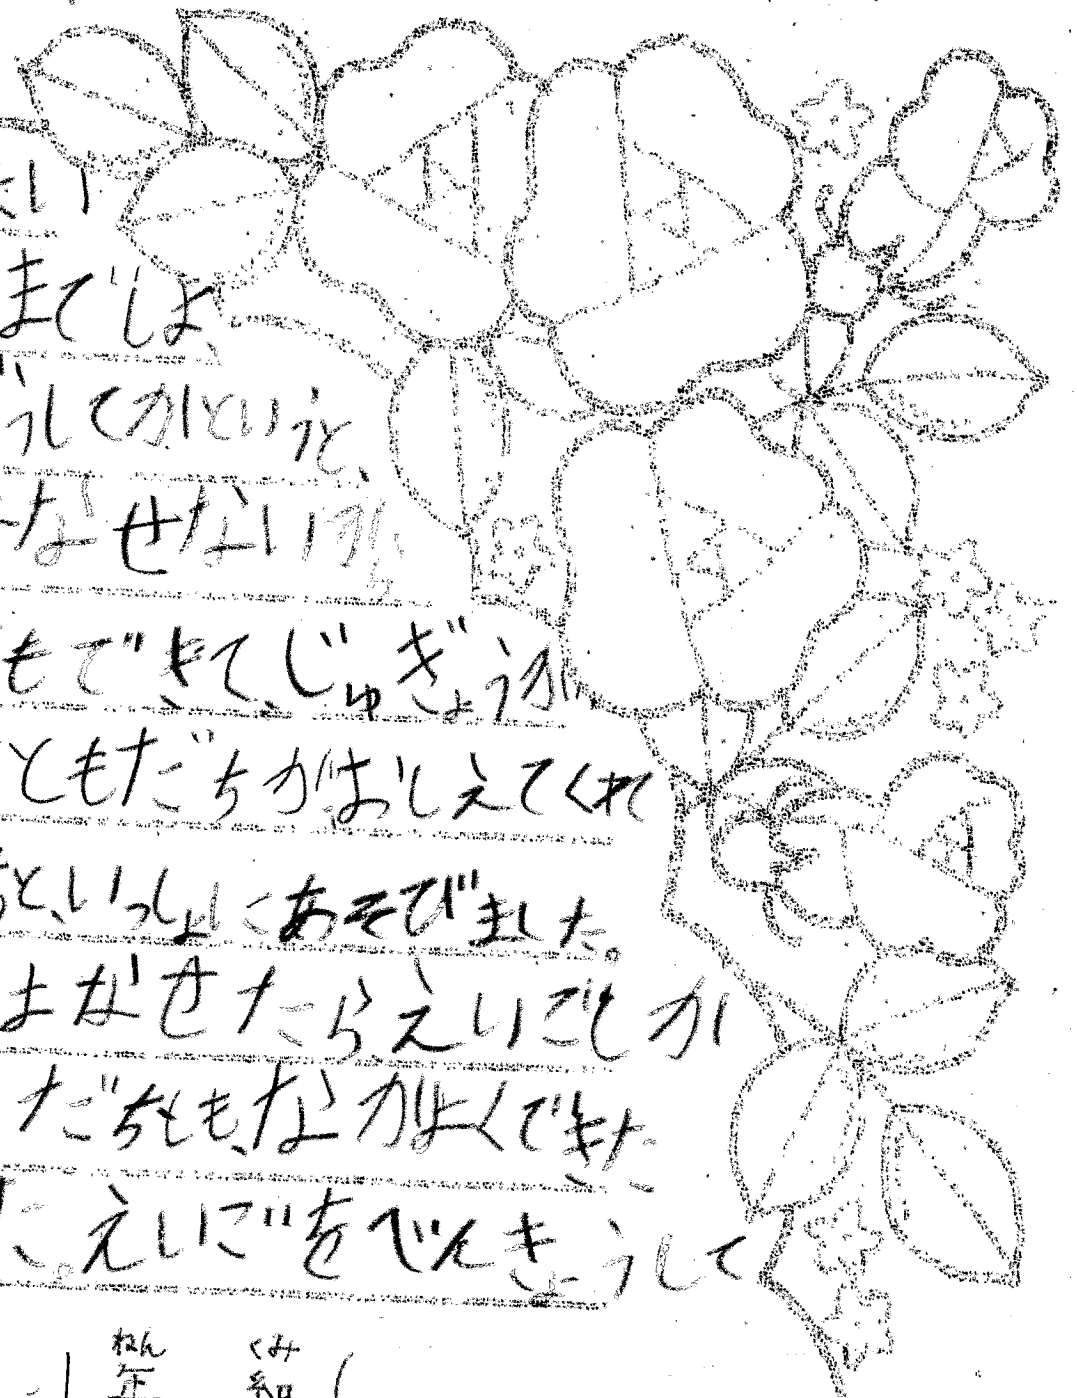 たい
までしょ、
うしてかというと、
なせないか
もできて、じゅぎょうが
ともだちがおしえてくれて
と、いっしょにあそびました。
はなせたらえいごしか
だちとも、なかよくできた
た。えいごをべんきょうして
ねん くみ
年 組